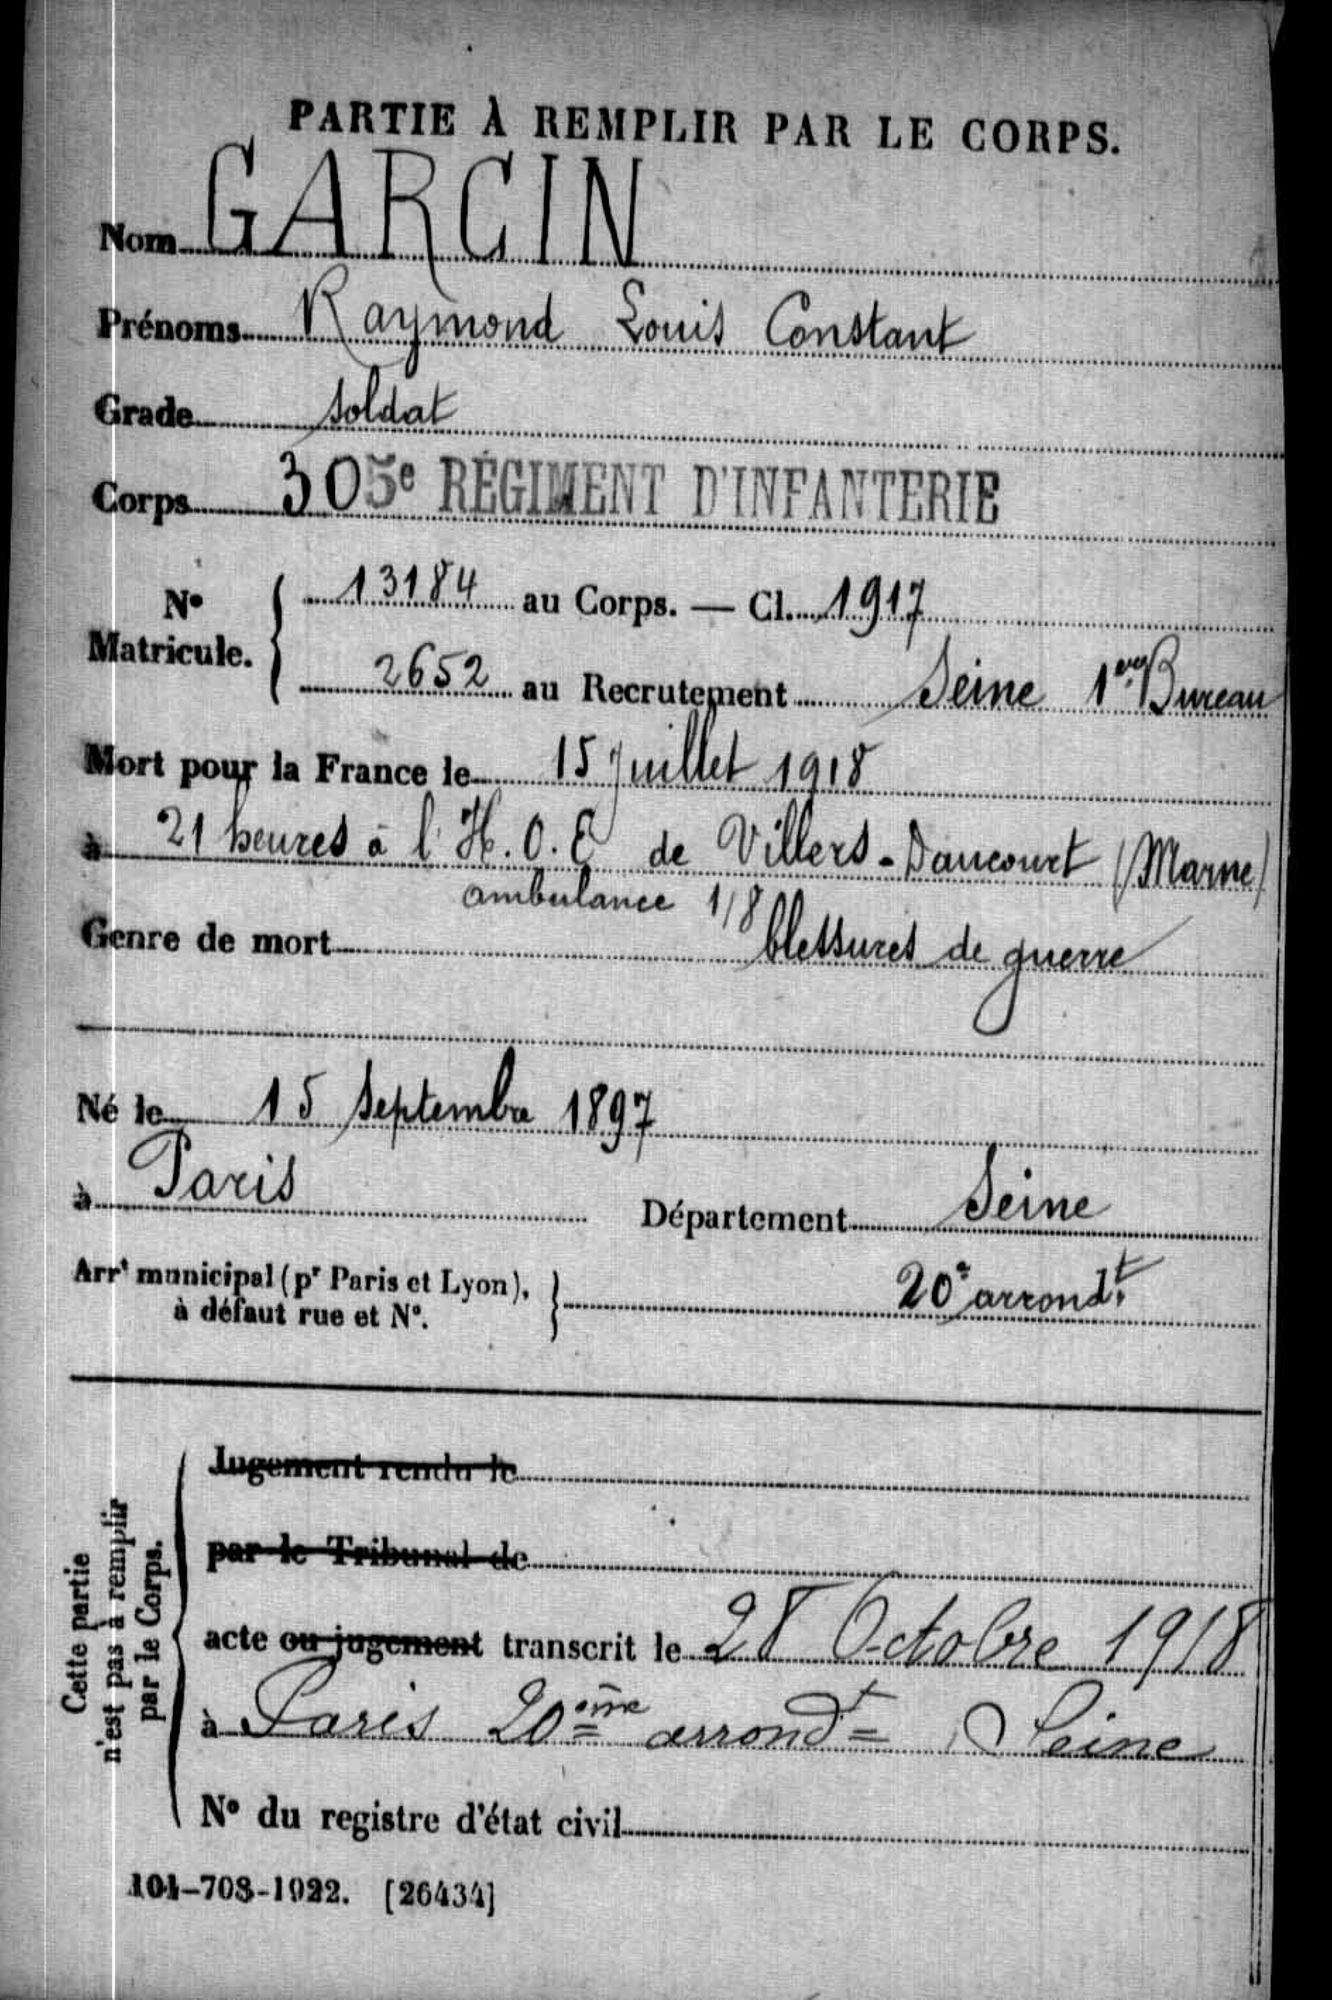 PARTIE À REMPLIR PAR LE CORPS.
Nom GARCIN
Prénoms Raymond Louis Constant
Grade soldat
Corps 305e RÉGIMENT D'INFANTERIE
No Matricule. { 13184 au Corps. — Cl. 1917
2652 au Recrutement Seine 1er Bureau
Mort pour la France le 15 Juillet 1918
à 21 heures à l'H.O.E de Villers-Daucourt (Marne)
ambulance 1/8
Genre de mort blessures de guerre
Né le 15 Septembre 1897
à Paris Département Seine
Arrt municipal (pr Paris et Lyon), à défaut rue et No. } 20e arrondt
Cette partie n'est pas à remplir par le Corps.
Jugement rendu le
par le Tribunal de
acte ou jugement transcrit le 28 Octobre 1918
à Paris 20ème arrondt Seine
No du registre d'état civil
101-708-1922. [26434]